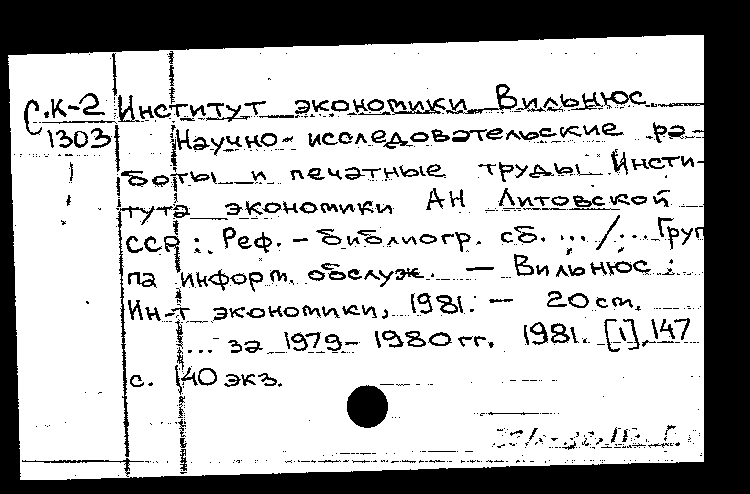 С.К-2 Институт экономики Вильнюс
1303 Научно-исследовательские ра-
боты и печатные труды Инсти-
тута экономики АН Литовской
ССР : Реф. - библиогр. сб. ... /... Груп
па информ. обслуж. — Вильнюс :
Ин-т экономики, 1981. — 20 см.
... за 1979-1980 гг. 1981. [1], 147
с. 140 экз.